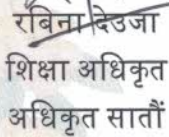 रबिना देउजा
शिक्षा अधिकृत
अधिकृत सातौं